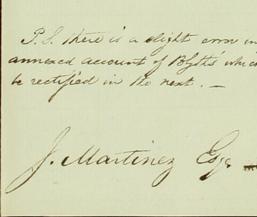 P.S. There is a slight error in
annexed account of Blyth's which
be rectified in the next. —
J. Martinez Esqr